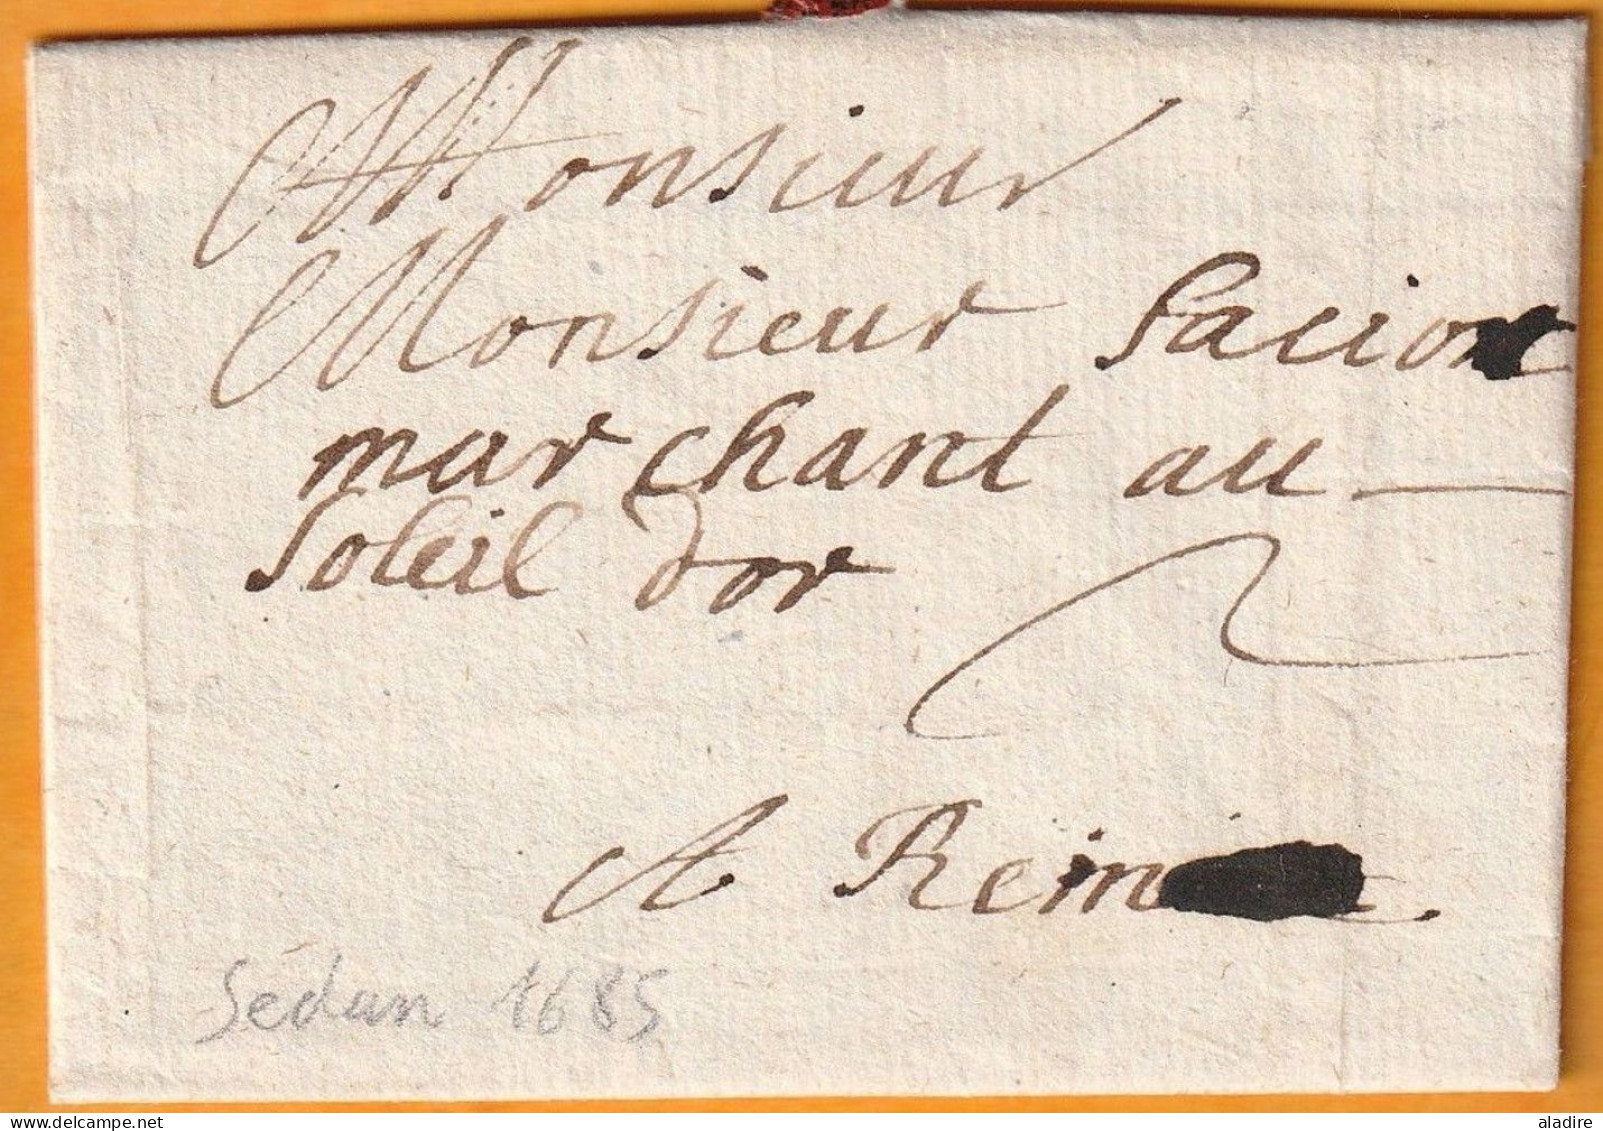 Monsieur
Monsieur
marchant au
Soleil dor
2
A Reims
Sédan 1685
delcampe.net
aladire